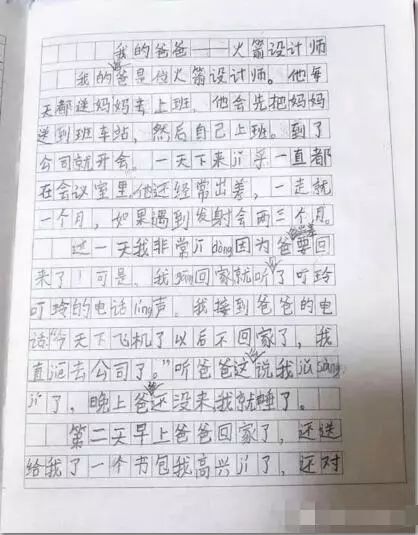 我的爸爸——火箭设计师
我的爸爸是位火箭设计师。他每
天都送妈妈去上班，他会先把妈妈
送到班车站，然后自己上班。到了
公司就开会。一天下来jī乎一直都
在会议室里。他还经常出差，一走就
一个月，如果遇到发射会两三个月。
这一天我非常jī dòng因为爸爸出差要回
来了！可是，我gāng回家就听了叮玲
叮玲的电话líng声。我接到爸爸的电
话“今天下飞机了以后不回家了，我
直jiē去公司了。”听爸爸这么说我jǔ sàng
jí了，晚上爸爸还没来我就睡了。
第二天早上爸爸回家了，还送
给我了一个书包我高兴jí了，还对